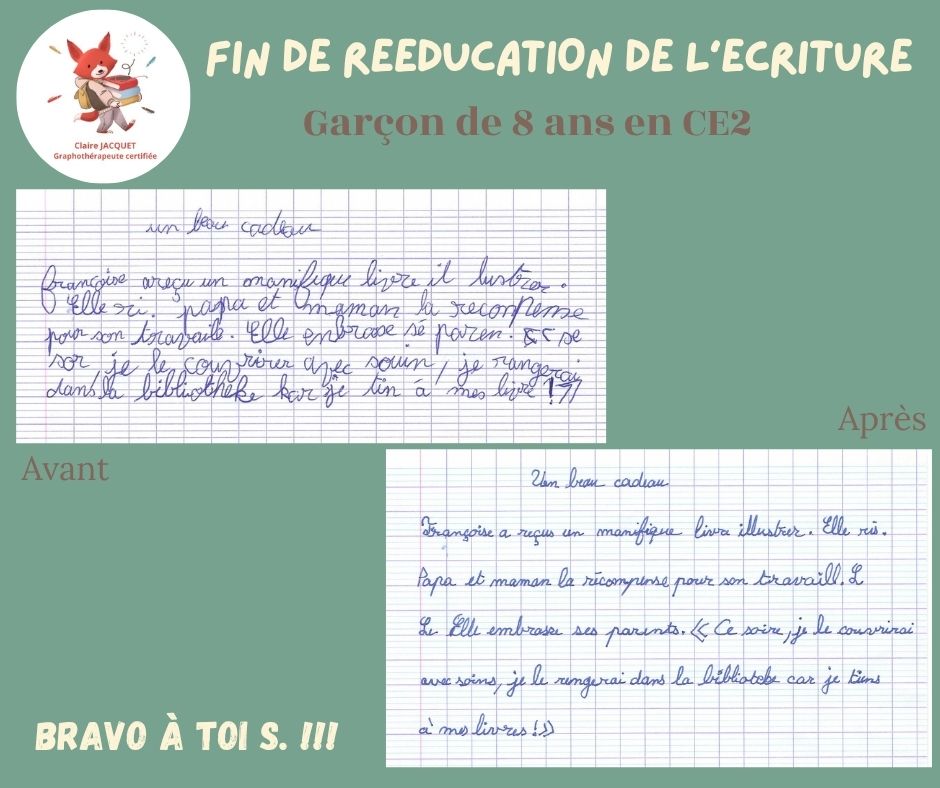 FIN DE REEDUCATION DE L'ECRITURE
Garçon de 8 ans en CE2
Claire JACQUET
Graphothérapeute certifiée
un beau cadeau
françoise areçu un manifique livre il lustrer.
Elle ri. papa et maman la reconpense
pour son travaile. Elle enbrase sé paren. << se
sor, je le couvrirer avec souin, je rangerai
dans la bibliotheke kar je tin à mes livre !>>
Avant
Après
Un beau cadeau
Françoise a reçus un manifique livre illustrer. Elle ris.
Papa et maman la récompense pour son travaill. L
Le Elle embrasse ses parents. << Ce soire, je le couvrirai
avec soins, je le rengerai dans la biblioteke car je tiens
à mes livres !>>
BRAVO À TOI S. !!!